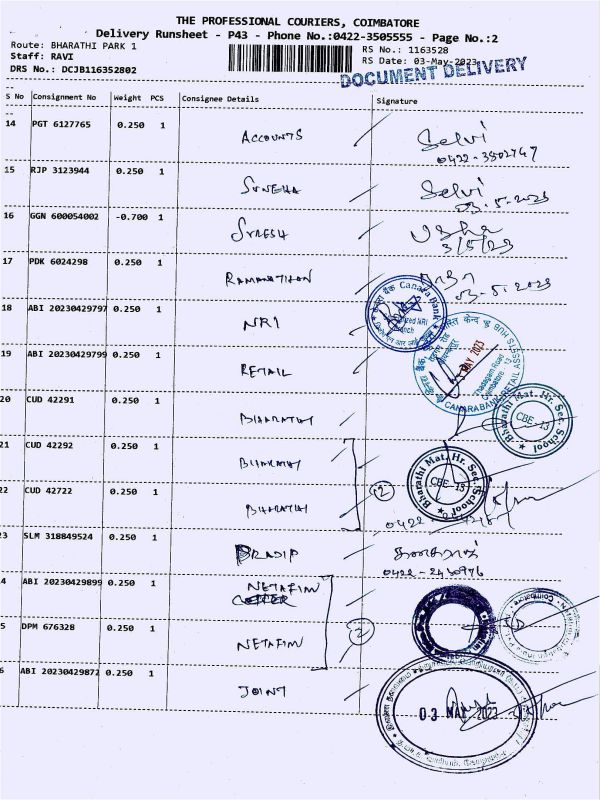 THE PROFESSIONAL COURIERS, COIMBATORE
Delivery Runsheet - P43 - Phone No.:0422-3505555 - Page No.:2
Route: BHARATHI PARK 1
RS No.: 1163528
Staff: RAVI
RS Date: 03-May-2023
DRS No.: DCJB116352802
DOCUMENT DELIVERY
S No Consignment No Weight PCS Consignee Details Signature
14 PGT 6127765 0.250 1 ACCOUNTS Selvi
15 RJP 3123944 0.250 1 Selvi
03.5.2023
16 GGN 600054002 -0.700 1 SURESH Usha
3/5/23
17 PDK 6024298 0.250 1 RAMANATHAN
03.5.2023
18 ABI 20230429797 0.250 1 NRI
Canara Bank
19 ABI 20230429799 0.250 1 RETAIL
MAY 2023
20 CUD 42291 0.250 1 BHARATHI
Bharathi Mat. Hr. Sec. School
CBE-13
21 CUD 42292 0.250 1 BHARATHI
Bharathi Mat. Hr. Sec. School
CBE-13
22 CUD 42722 0.250 1 BHARATHI 2
0422
SLM 318849524 0.250 1 PRADIP
0422-2430976
ABI 20230429899 0.250 1 NETAFIM
DPM 676328 0.250 1 NETAFIM 2
ABI 20230429872 0.250 1 JOINT
03 MAY 2023